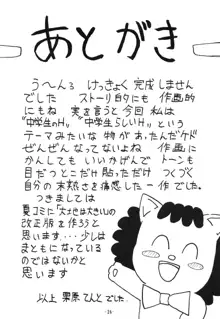 あとがき
うへ〜んろ けっきょく 完成しません
でした ストーリ的にも 作画的
にもね 実を言うと今回 私は
"中学生のH" "中学生らしいH" という
テーマみたいな 物が あったんだケド
ぜんぜん なってないよね 作画に
かんしても いいかげんで トーンも
目だっとこだけ貼っただけ つくづく
自分の 未熟さを 痛感した 一作でした。
つきましては
夏コミに「大きさは大きい」の
改正版を作ろうと
思います・・・少しは
まともになっている
のではないかと
思います
以上 栗原 てんと でした。
-26-